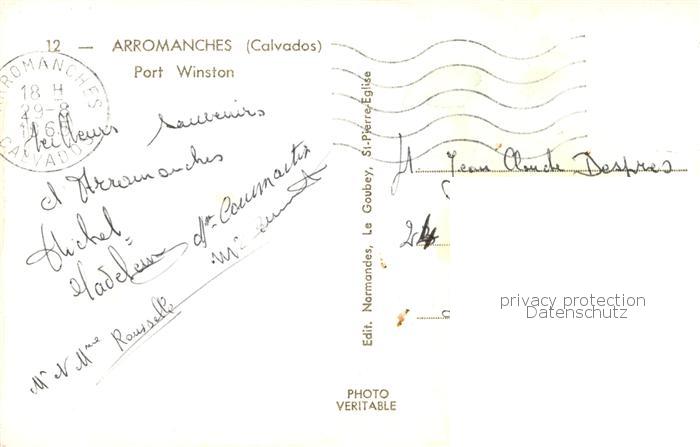 12 — ARROMANCHES (Calvados)
Port Winston
ARROMANCHES
18 H
29-8
CALVADOS
Meilleurs souvenirs
d'Arromanches
Michel
Madeleine
Mr N Mme Rousselle
Edit. Normandes, Le Goubey, St-Pierre-Eglise
M. Jean Claude Despres
24
privacy protection
Datenschutz
PHOTO
VERITABLE